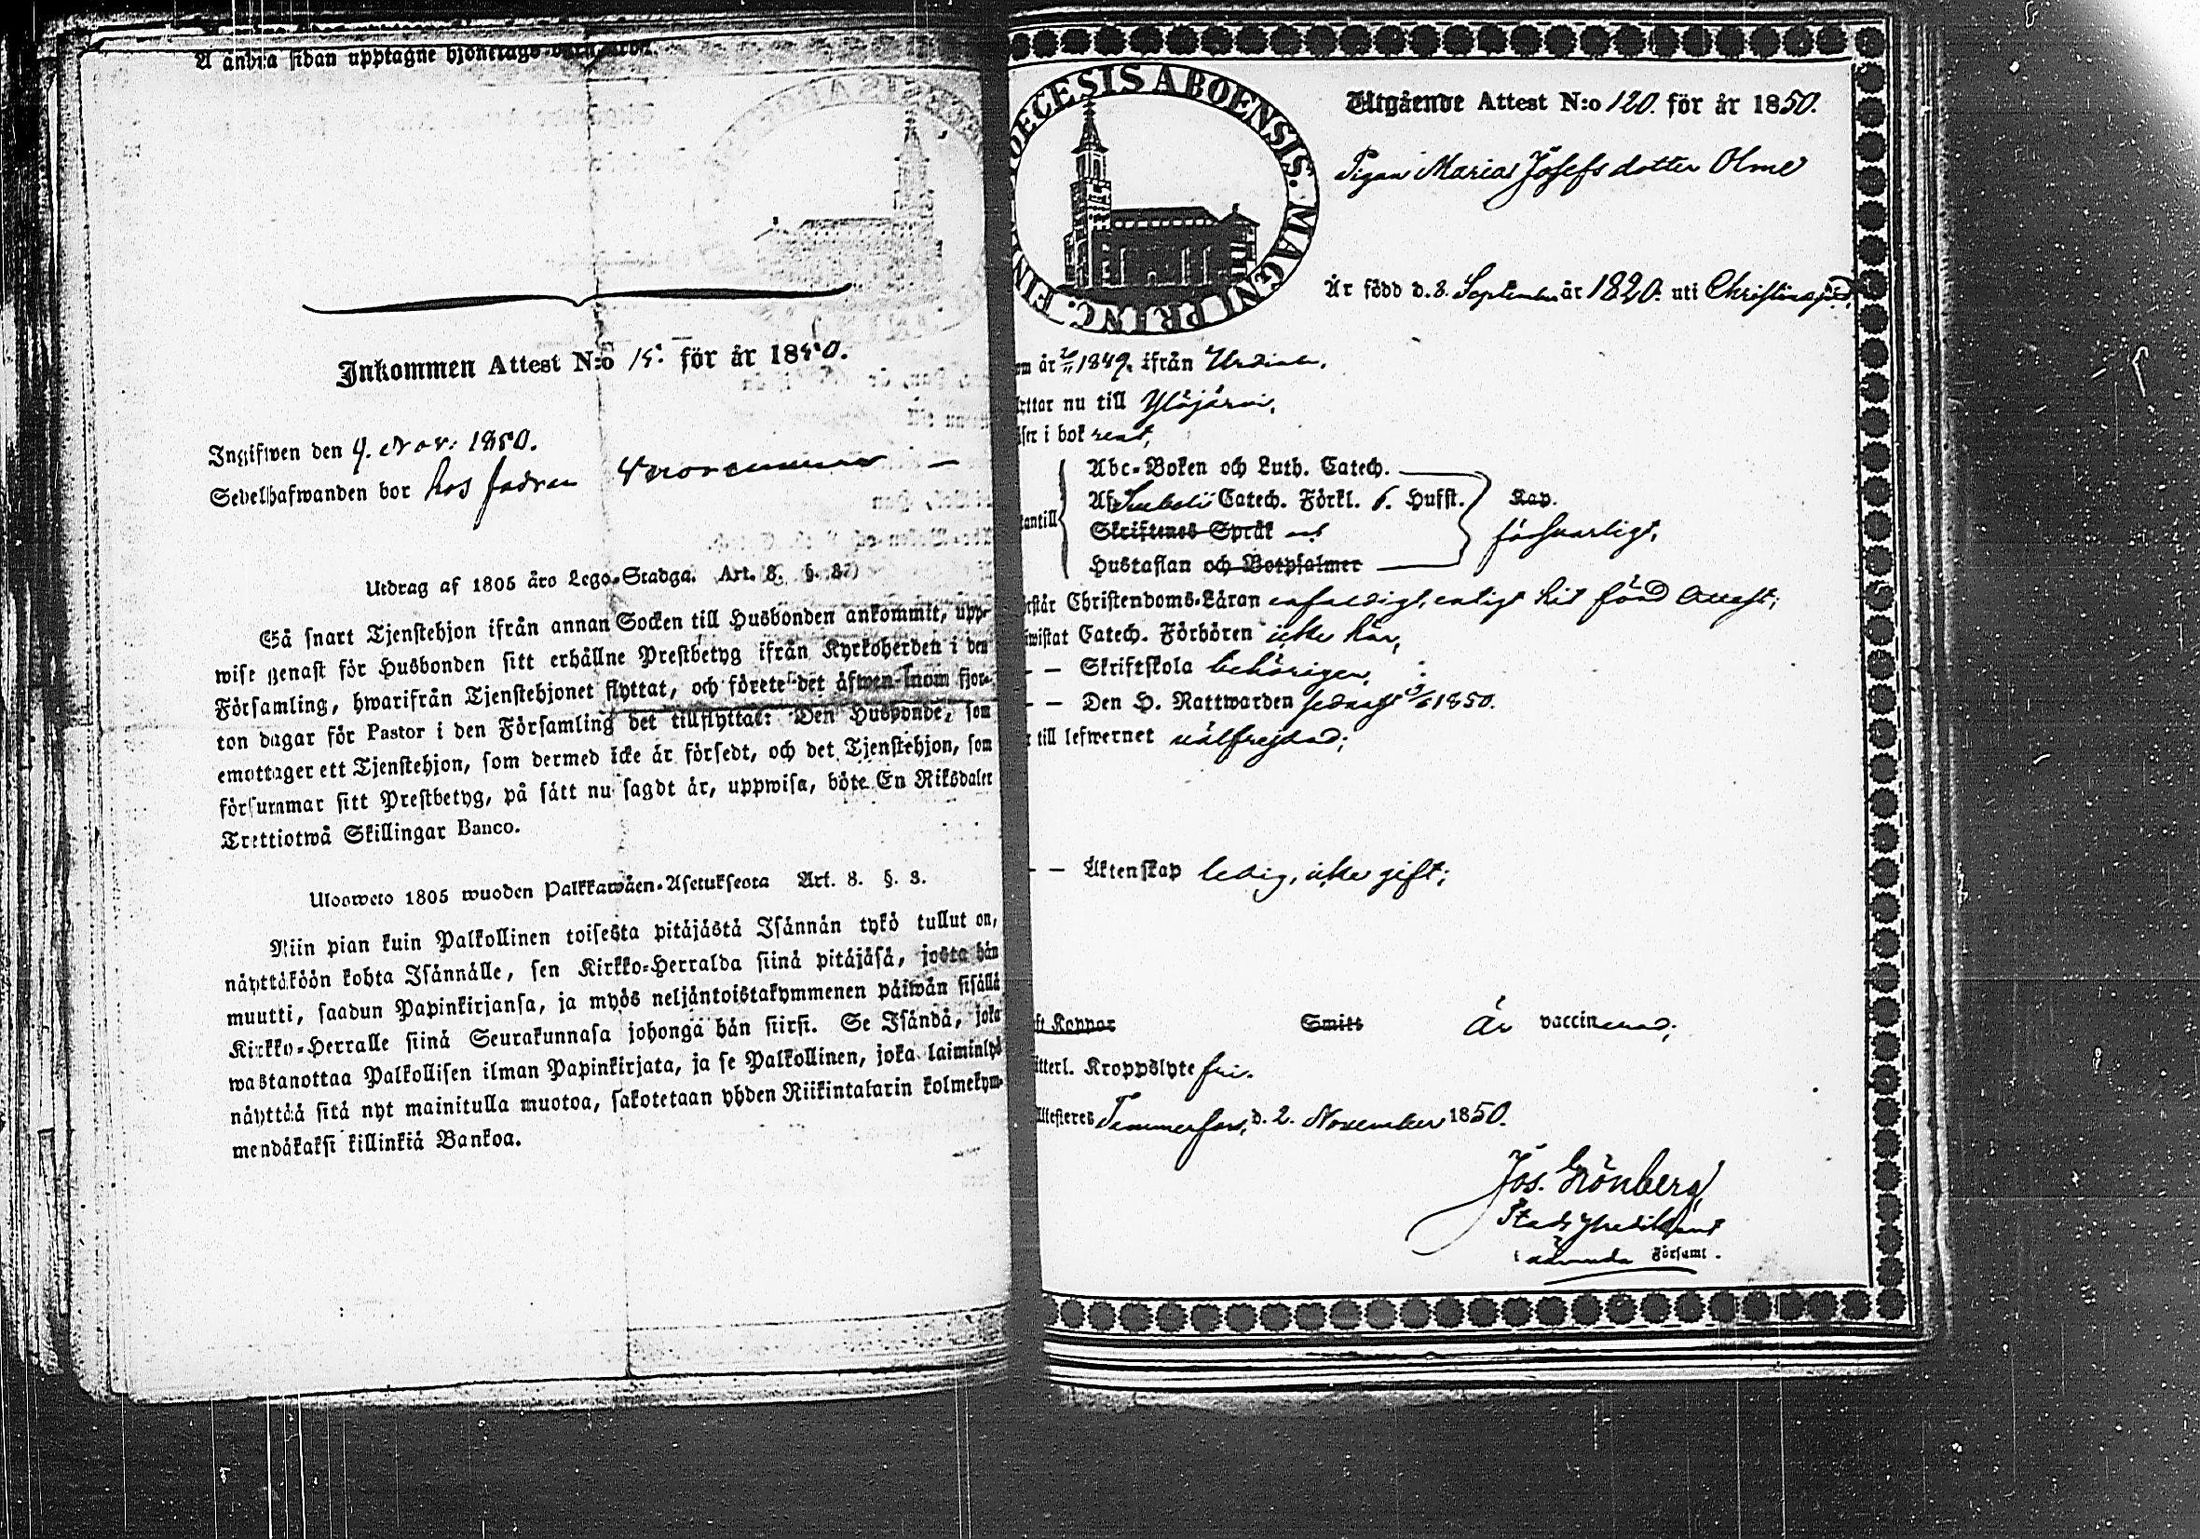 Å andra sidan upptagne hjonelags
Inkommen Attest N:o 15. för år 1850.
Ingifwen den 9. Nov: 1850.
Sedelhafwanden bor hos
Utdrag af 1805 års Lego-Stadga. Art. 8. §. 3.
Så snart Tjenstehjon ifrån annan Socken till Husbonden ankommit, upp-
wise genast för Husbonden sitt erhållne Prestbetyg ifrån Kyrkoherden i den
Församling, hwarifrån Tjenstehjonet flyttat, och förete det äfwen inom fjor-
ton dagar för Pastor i den Församling det tillflyttat: Den Husbonde, som
emottager ett Tjenstehjon, som dermed icke är försedt, och det Tjenstehjon, som
försummar sitt Prestbetyg, på sätt nu sagdt är, uppwisa, böte En Riksdaler
Trettiotwå Skillingar Banco.
Ulosweto 1805 wuoden Palkkawäen-Asetuksesta Art. 8. §. 3.
Niin pian kuin Palkollinen toisesta pitäjästä Isännän tykö tullut on,
näyttäköön kohta Isännälle, sen Kirkko-Herralda siinä pitäjäsä, josta hän
muutti, saadun Papinkirjansa, ja myös neljäntoistakymmenen päiwän sisällä
Kirkko-Herralle siinä Seurakunnasa johonga hän siirsi. Se Isändä, joka
wastanottaa Palkollisen ilman Papinkirjata, ja se Palkollinen, joka laiminlyö
näyttää sitä nyt mainitulla muotoa, sakotetaan yhden Riikintalarin kolmekym-
mendäkaksi killinkiä Bankoa.
DIOECESIS ABOENSIS. MAGNI PRINC. FIN
Utgående Attest N:o 120. för år 1850.
Pigan Maria Josefsdotter Olme
Är född d. 8. September år 1820. uti Christina
om år 1849. ifrån Urdiala.
yttar nu till Ylöjärvi,
äser i bok rent,
Abc-Boken och Luth. Catech.
Af Svebelii Catech. Förkl. 6. Hufst. Kap.
antill
Skriftenes Språk
försvarligt,
Hustaflan och Botpsalmer
rstår Christendoms-Läran enfaldigt, enligt hit förd Attest;
wistat Catech. Förhören icke här,
— — Skriftskola behörigen,
— — Den H. Nattwarden sednast 1850.
till lefwernet välfrejdad;
— — Äktenskap ledig, icke gift;
ft Koppor Smitt Är vaccinerad;
ytterl. Kroppslyte fri.
Attesteres Tammerfors, d. 2. November 1850.
Jos. Grönberg
Stadspredikant
i nämnda Församl.